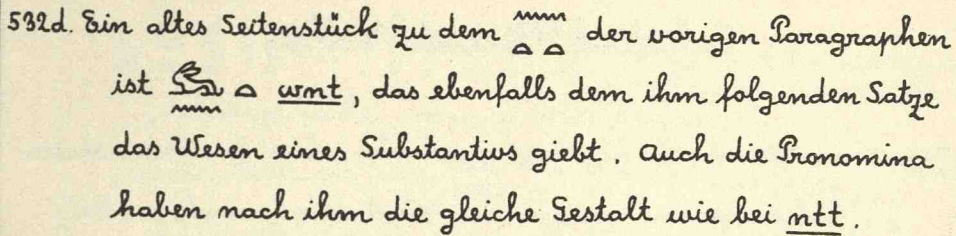 532d. Ein altes Seitenstück zu dem 𓈖𓏏𓏏 der vorigen Paragraphen
ist 𓃹𓈖𓏏 wnt, das ebenfalls dem ihm folgenden Satze
das Wesen eines Substantivs giebt. Auch die Pronomina
haben nach ihm die gleiche Gestalt wie bei ntt.